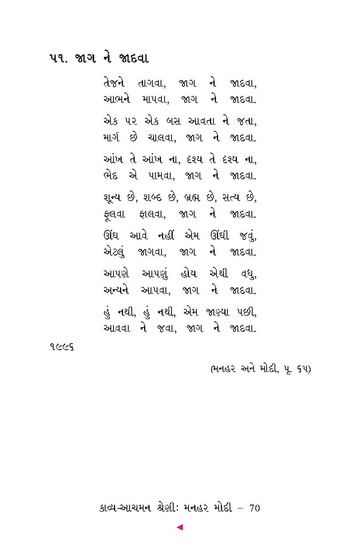 ૫૧. જાગ ને જાદવા
તેજને તાગવા, જાગ ને જાદવા,
આભને માપવા, જાગ ને જાદવા.
એક પર એક બસ આવતા ને જતા,
માર્ગ છે ચાલવા, જાગ ને જાદવા.
આંખ તે આંખ ના, દૃશ્ય તે દૃશ્ય ના,
ભેદ એ પામવા, જાગ ને જાદવા.
શૂન્ય છે, શબ્દ છે, બ્રહ્મ છે, સત્ય છે,
ફૂલવા ફાલવા, જાગ ને જાદવા.
ઊંઘ આવે નહીં એમ ઊંઘી જવું,
એટલું જાગવા, જાગ ને જાદવા.
આપણે આપણું હોય એથી વધુ,
અન્યને આપવા, જાગ ને જાદવા.
હું નથી, હું નથી, એમ જાણ્યા પછી,
આવવા ને જવા, જાગ ને જાદવા.
૧૯૯૬
(મનહર અને મોદી, પૃ. ૬૫)
કાવ્ય-આચમન શ્રેણીઃ મનહર મોદી – 70